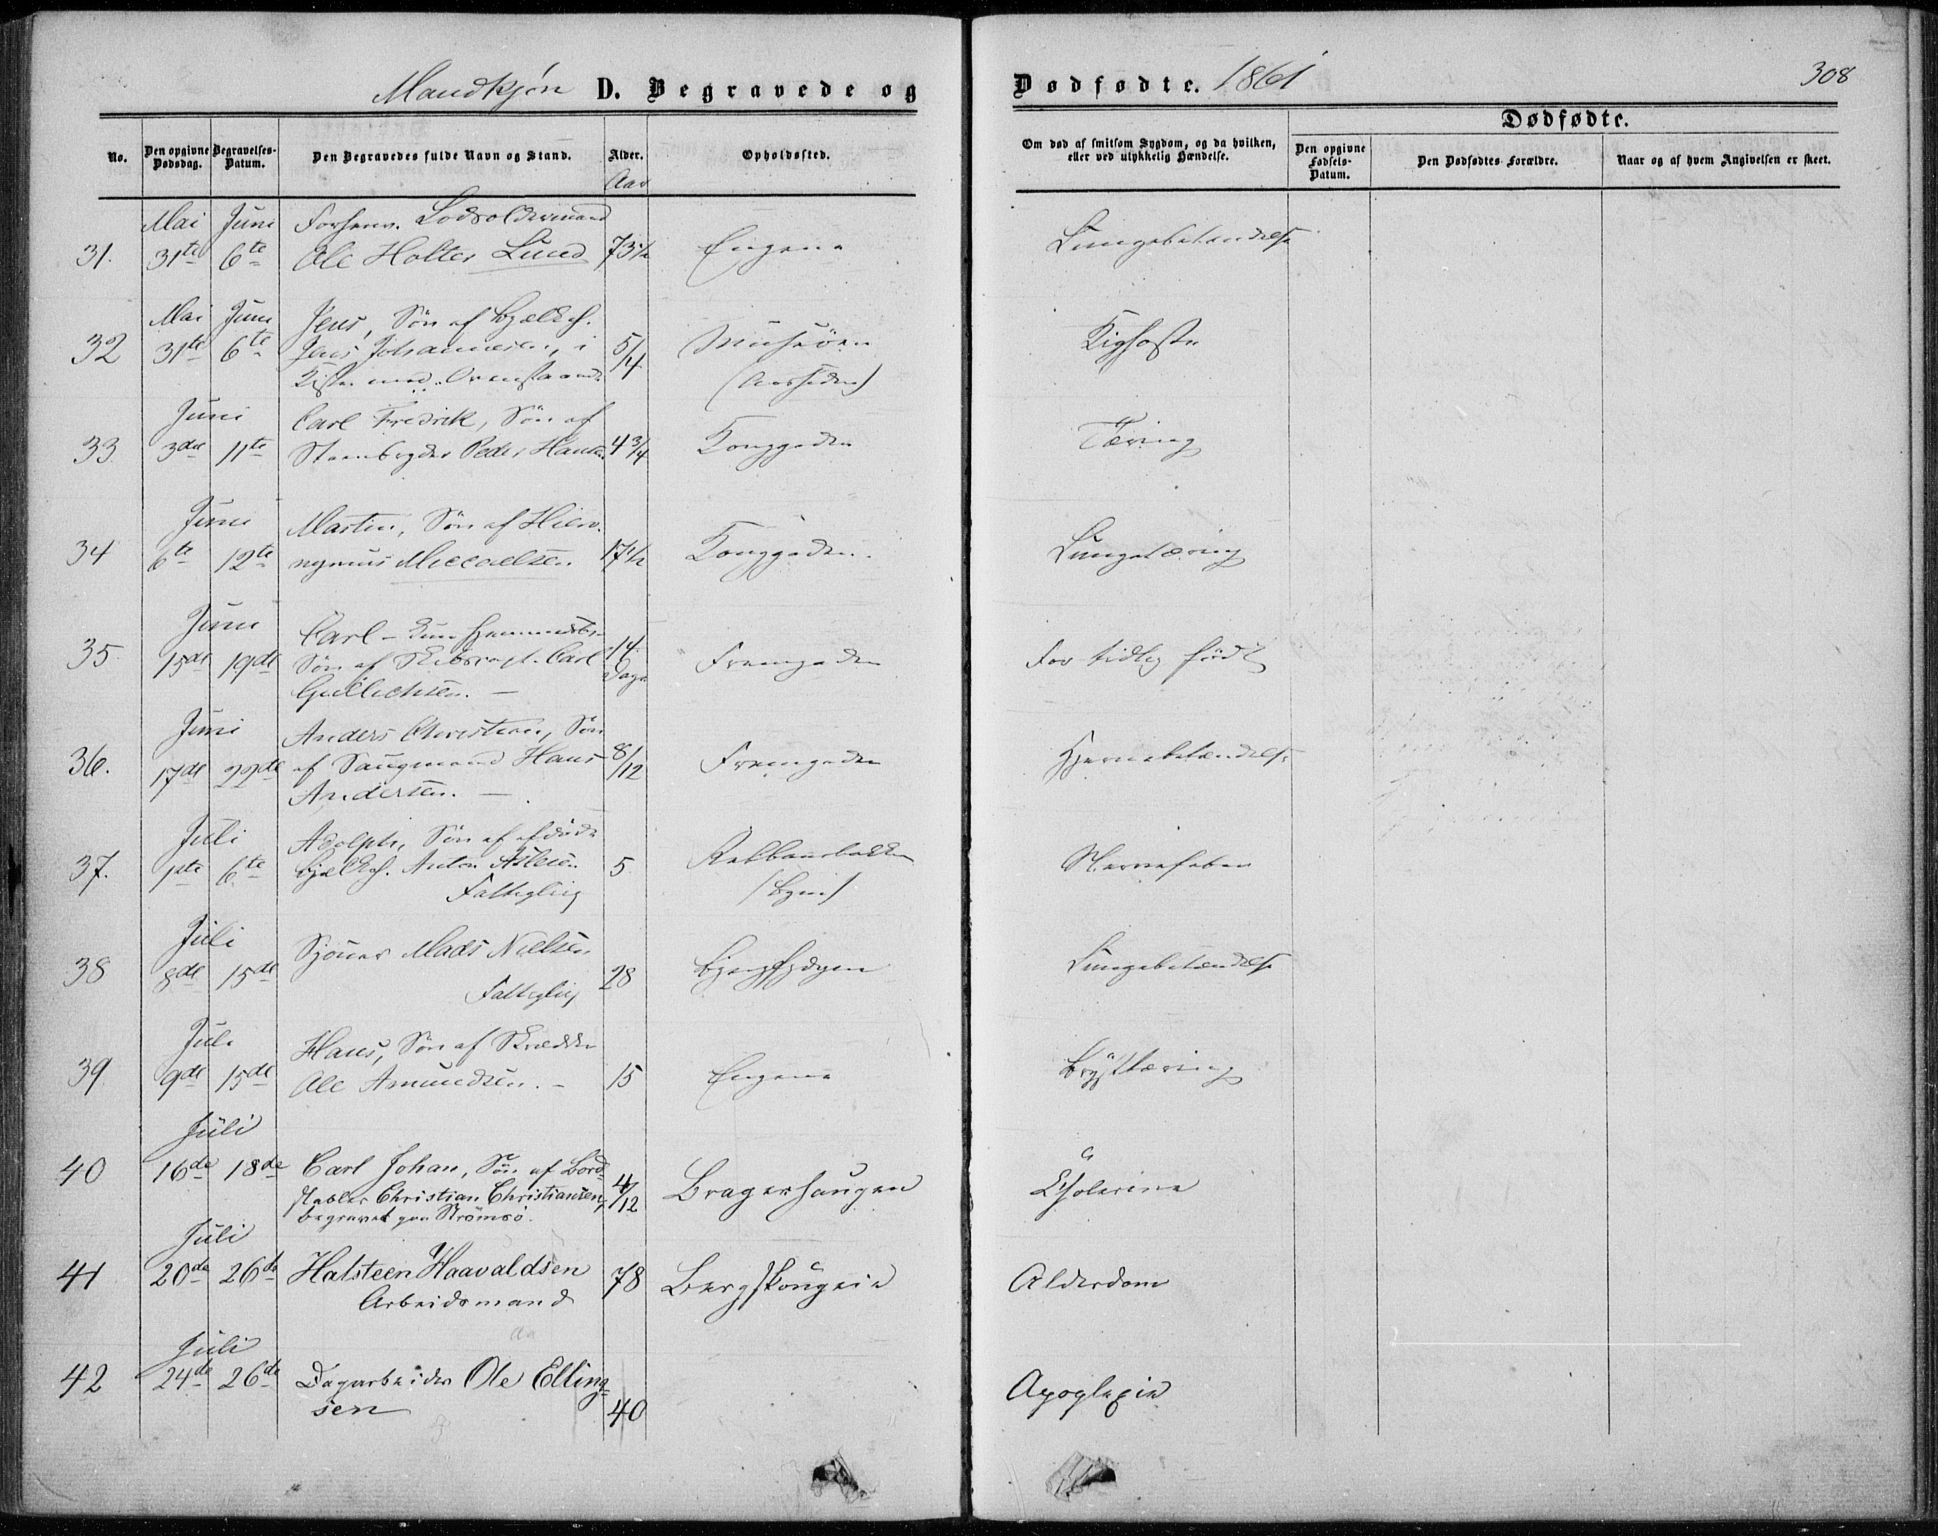 Mandkjøn D. Begravede og
Dødfødte. 1861
308
No.
Den opgivne Dødsdag.
Begravelses-Datum.
Den Begravedes fulde Navn og Stand.
Alder.
Aar
Opholdssted.
Om død af smitsom Sygdom, og da hvilken, eller ved ulykkelig Hændelse.
Dødfødte.
Den opgivne Fødsels-Datum.
Den Dødfødtes Forældre.
Naar og af hvem Angivelsen er skeet.
Mai Juni Forhenv. Lodsoldermand
31. 31te 6te Ole Holter Lund 73½ Engene Lungebetændelse
Mai Juni Jens, Søn af
32 31te 6te Jens Johannesen, i 5/4 Kighoste
Kiste med Ovenstaaende
Juni Carl Fredrik, Søn af
33 3die 11te Peder Hansen 4¾ Konggaden Tæring
Juni Martin, Søn af Hiero-
34 6te 12te nymus Miccaelsen 17½ Konggaden. Lungetæring
Juni Carl - kun hjemmedøbt
35 15de 19de Søn af Skibscapt. Carl 14 Dage For tidlig født
Gullichsen. -
Juni Anders Christian, Søn
36. 17de 22de af Saugmand Hans 8/12 Hjernebetændelse
Andersen. -
Juli Adolph, Søn af afdøde
37. 1ste 6te Anton 5 Nervefeber
Fattiglig (Byen)
Juli Sjouer Mads Nielsen
38 8de 15de 28 Lungebetændelse
Fattiglig
Juli Hans, Søn af Skrædder
39 9de 15de Ole Amundsen. - 15 Engene Brysttæring
Juli
40 16de 18de Carl Johan, Søn af Bord-
stabler Christian Christiansen, 4/12 Bragerhaugen Cholerine
begravet paa Strømsø.
Juli
41 20de 26de Halsteen Haavaldsen 78 Bergskougeie Alderdom
Arbeidsmand
Juli
42 24de 26de Dagarbeider Ole Elling-
sen 40 Apoplexie